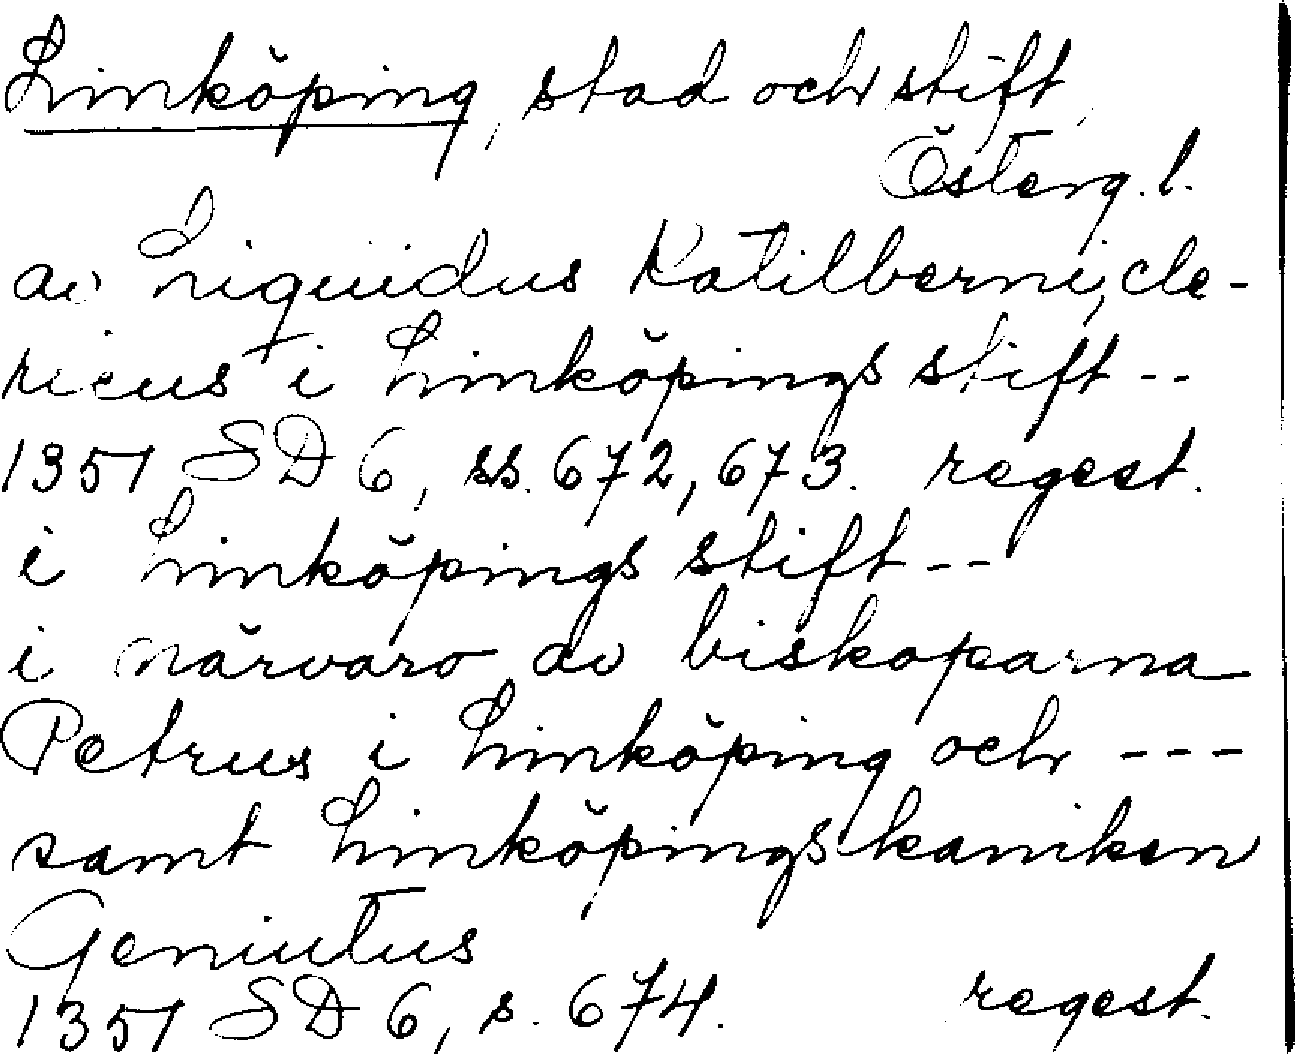 Linköping, stad och stift,
Österg.l.
av Liquidus Katilberni, cle-
ricus i Linköpings stift --
1351 SD 6, ss. 672, 673. regest.
i Linköpings stift --
i närvaro av biskoparna
Petrus i Linköping och ---
samt Linköpingskaniken
Geniutus
1351 SD 6, s. 674. regest.